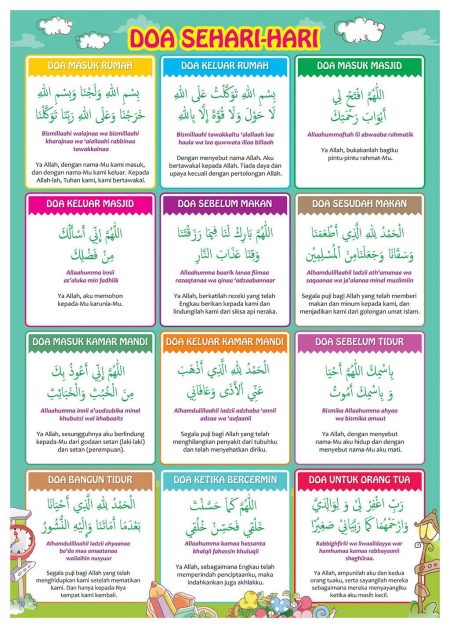 DOA SEHARI-HARI
DOA MASUK RUMAH
بِسْمِ اللهِ وَلَجْنَا وَبِسْمِ اللهِ
خَرَجْنَا وَعَلَى اللهِ رَبِّنَا تَوَكَّلْنَا
Bismillaahi walajnaa wa bismillaahi
kharajnaa wa 'alallaahi rabbinaa
tawakkalnaa
Ya Allah, dengan nama-Mu kami masuk,
dan dengan nama-Mu kami keluar. Kepada
Allah-lah, Tuhan kami, kami bertawakal.
DOA KELUAR RUMAH
بِسْمِ اللهِ تَوَكَّلْتُ عَلَى اللهِ
لَا حَوْلَ وَلَا قُوَّةَ إِلَّا بِاللهِ
Bismillaahi tawakkaltu 'alallaah laa
haula wa laa quwwata illaa billaah
Dengan menyebut nama Allah. Aku
bertawakal kepada Allah. Tiada daya dan
upaya kecuali dengan pertolongan Allah.
DOA MASUK MASJID
اللّٰهُمَّ افْتَحْ لِي
أَبْوَابَ رَحْمَتِكَ
Allaahummaftah lii abwaaba rahmatik
Ya Allah, bukakanlah bagiku
pintu-pintu rahmat-Mu.
DOA KELUAR MASJID
اللّٰهُمَّ إِنِّي أَسْأَلُكَ
مِنْ فَضْلِكَ
Allaahumma innii
as'aluka min fadhlik
Ya Allah, aku memohon
kepada-Mu karunia-Mu.
DOA SEBELUM MAKAN
اللّٰهُمَّ بَارِكْ لَنَا فِيمَا رَزَقْتَنَا
وَقِنَا عَذَابَ النَّارِ
Allaahumma baarik lanaa fiimaa
razaqtanaa wa qinaa 'adzaabannaar
Ya Allah, berkatilah rezeki yang telah
Engkau berikan kepada kami dan
lindungilah kami dari siksa api neraka.
DOA SESUDAH MAKAN
الْحَمْدُ لِلّٰهِ الَّذِي أَطْعَمَنَا
وَسَقَانَا وَجَعَلَنَا مِنَ الْمُسْلِمِيْنَ
Alhamdulillaahil ladzii ath'amanaa wa
saqaanaa wa ja'alanaa minal muslimiin
Segala puji bagi Allah yang telah memberi
makan dan minum kepada kami, dan
menjadikan kami dari golongan umat Islam.
DOA MASUK KAMAR MANDI
اللّٰهُمَّ إِنِّي أَعُوْذُ بِكَ
مِنَ الْخُبُثِ وَالْخَبَائِثِ
Allaahumma innii a'uudzubika minal
khubutsi wal khabaaits
Ya Allah, sesungguhnya aku berlindung
kepada-Mu dari godaan setan (laki-laki)
dan setan (perempuan).
DOA KELUAR KAMAR MANDI
الْحَمْدُ لِلّٰهِ الَّذِي أَذْهَبَ
عَنِّي الْأَذَى وَعَافَانِي
Alhamdulillaahil ladzii adzhaba 'annil
adzaa wa 'aafaanii
Segala puji bagi Allah yang telah
menghilangkan penyakit dari tubuhku
dan telah menyehatkan diriku.
DOA SEBELUM TIDUR
بِاسْمِكَ اللّٰهُمَّ أَحْيَا
وَ بِاسْمِكَ أَمُوْتُ
Bismika Allaahumma ahyaa
wa bismika amuut
Ya Allah, dengan menyebut
nama-Mu aku hidup dan dengan
menyebut nama-Mu aku mati.
DOA BANGUN TIDUR
الْحَمْدُ لِلّٰهِ الَّذِي أَحْيَانَا
بَعْدَمَا أَمَاتَنَا وَإِلَيْهِ النُّشُوْرُ
Alhamdulillaahil ladzii ahyaanaa
ba'da maa amaatanaa
wailaihin nusyuur
Segala puji bagi Allah yang telah
menghidupkan kami setelah mematikan
kami. Dan hanya kepada-Nya
tempat kami kembali.
DOA KETIKA BERCERMIN
اللّٰهُمَّ كَمَا حَسَّنْتَ
خَلْقِي فَحَسِّنْ خُلُقِي
Allaahumma kamaa hassanta
khalqii fahassin khuluqii
Ya Allah, sebagaimana Engkau telah
memperindah penciptaanku, maka
indahkankan juga akhlakku.
DOA UNTUK ORANG TUA
رَبِّ اغْفِرْ لِيْ وَ لِوَالِدَيَّ
وَارْحَمْهُمَا كَمَا رَبَّيَانِيْ صَغِيْرًا
Rabbighfirlii wa liwaalidayya war
hamhumaa kamaa rabbayaanii
shaghiiraa.
Ya Allah, ampunilah aku dan kedua
orang tuaku, serta sayangilah mereka
sebagaimana mereka menyayangiku
ketika aku masih kecil.